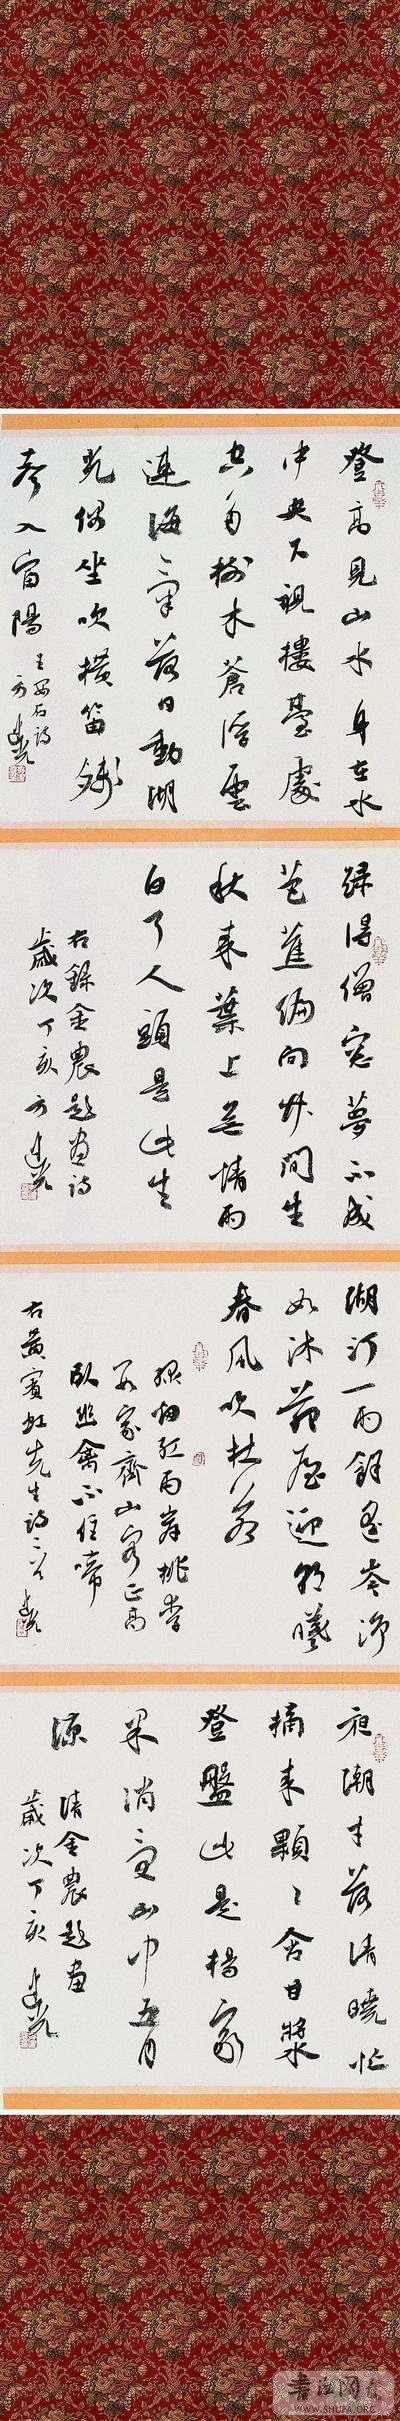 登高見山水身在水
中央下視樓臺處
空多樹木蒼浮雲
連海氣落日動湖
光偶坐吹橫笛殘
聲入富陽
王安石詩
方建光
緑得僧窓夢不成
芭蕉偏向竹間生
秋來葉上無情雨
白了人頭是此生
右錄金農題畫詩
歲次丁亥方建光
湖汀一雨餘岑淨
如沐茆屋迎朝曦
春風吹杜若
紅雨岸桃李
家齋山客正高
臥幽禽不住啼
右黃賓虹先生詩二首建光
夜潮才落清曉忙
摘來顆〻含甘漿
登盤此是楊家
果消受山中五月
涼
清金農題畫
歲次丁亥建光
書法网
WWW.SHUFA.ORG